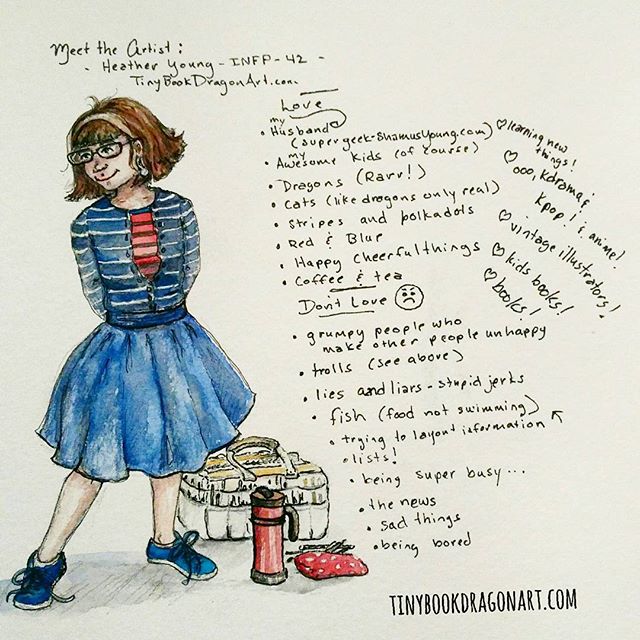 Meet the Artist:
- Heather Young - INFP - 42 -
TinyBookDragonArt.com
Love
• my Husband
(supergeek-ShamusYoung.com)
• my Awesome kids (of course)
• Dragons (Rarr!)
• Cats (like dragons only real)
• Stripes and polkadots
• Red & Blue
• Happy Cheerful things
• Coffee & tea
♡ learning new
things!
♡ ooo, kdrama &
Kpop! & anime!
♡ vintage illustrators!
♡ kids books!
♡ books!
Don't Love ☹
• grumpy people who
make other people unhappy
• trolls (see above)
• lies and liars - stupid jerks
• fish (food not swimming)
• trying to layout information ↖
• lists!
• being super busy...
• the news
• sad things
• being bored
TINYBOOKDRAGONART.COM